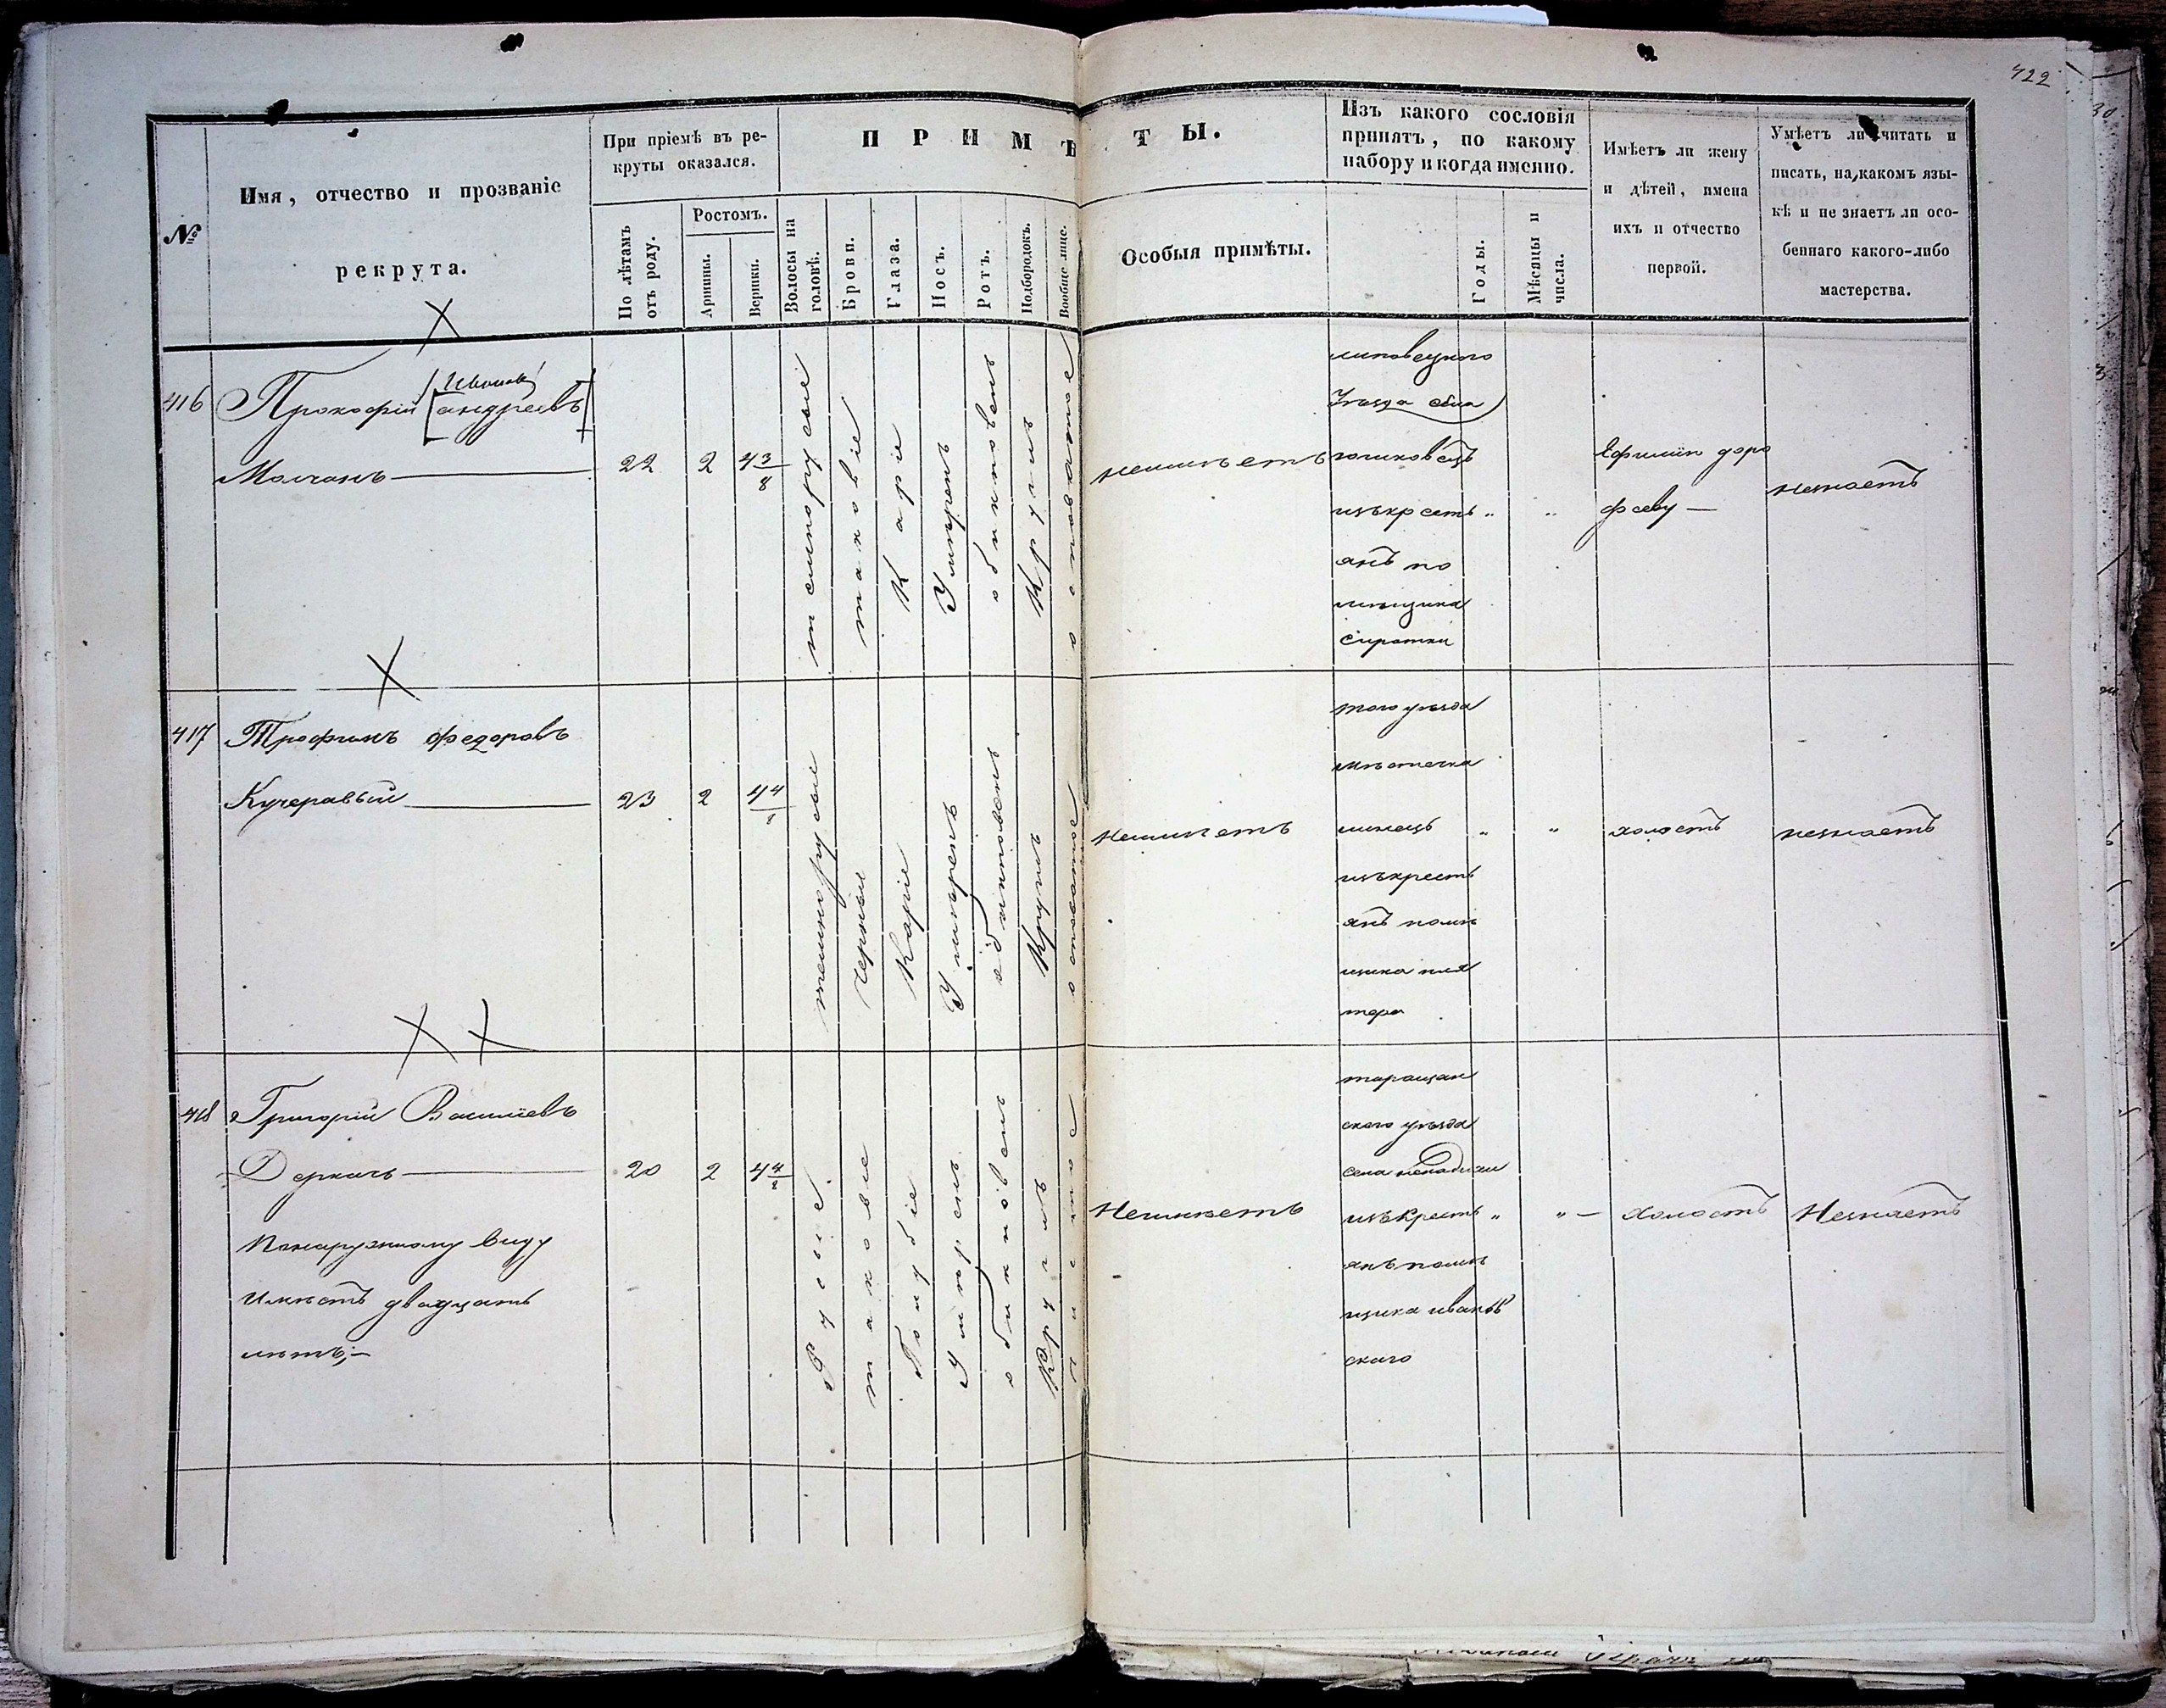 422
№
Имя, отчество и прозваніе
рекрута.
При пріемѣ въ ре-
круты оказался.
По лѣтамъ
отъ роду.
Ростомъ.
Аршины.
Вершки.
ПРИМѢТЫ.
Волосы на
головѣ.
Брови.
Глаза.
Носъ.
Ротъ.
Подбородокъ.
Вообще лице.
Особыя примѣты.
Изъ какого сословія
принятъ, по какому
набору и когда именно.
Годы.
Мѣсяцы и
числа.
Имѣетъ ли жену
и дѣтей, имена
ихъ и отчество
первой.
Умѣетъ ли читать и
писать, на какомъ язы-
кѣ и не знаетъ ли осо-
беннаго какого-либо
мастерства.
416
Прокофій [андреевъ]
Молчанъ
22
2
4 3/8
темнорусые
таковіе
Каріе
Умѣренъ
обикновенъ
Круглъ
неимѣетъ
липовецкого
Уезда села
изъкресть
янъ по
мещика
Сиротки
Ефимію доро
фееву —
незнаетъ
417
Трофимъ федоровъ
Кучеравый
23
2
4 4
темнорусые
Черные
Каріе
Умѣренъ
обикновенъ
Круглъ
Неимѣетъ
того уезда
мѣстечка
линецъ
изъкресть
янъ помѣ
щика
холостъ
незнаетъ
418
Григорій Василіевъ
Деркачъ
Понаружному виду
Имѣетъ двадцать
лѣтъ;—
20
2
4 4/8
Русые
таковіе
Голубіе
Умѣренъ
обикновенъ
Круглъ
чистое
Неимѣетъ
таращан
ского уезда
села ненадихи
изъкресть
янъ помѣ
щика иванов
ского
холостъ
Незнаетъ